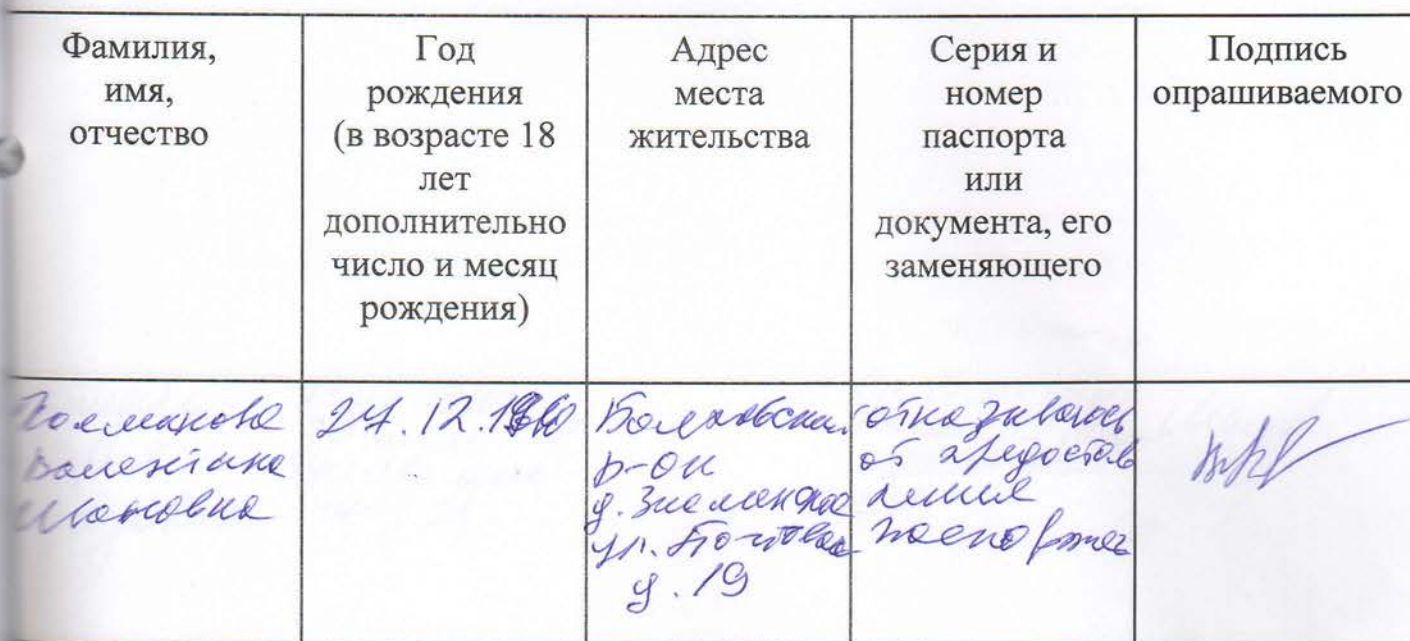 Фамилия,
имя,
отчество
Год
рождения
(в возрасте 18
лет
дополнительно
число и месяц
рождения)
Адрес
места
жительства
Серия и
номер
паспорта
или
документа, его
заменяющего
Подпись
опрашиваемого
Валентина
Ивановна
27.12.
Болховский
р-он
д.
ул. Почтовая
д. 19
отказываюсь
от предостав
ления
паспорта